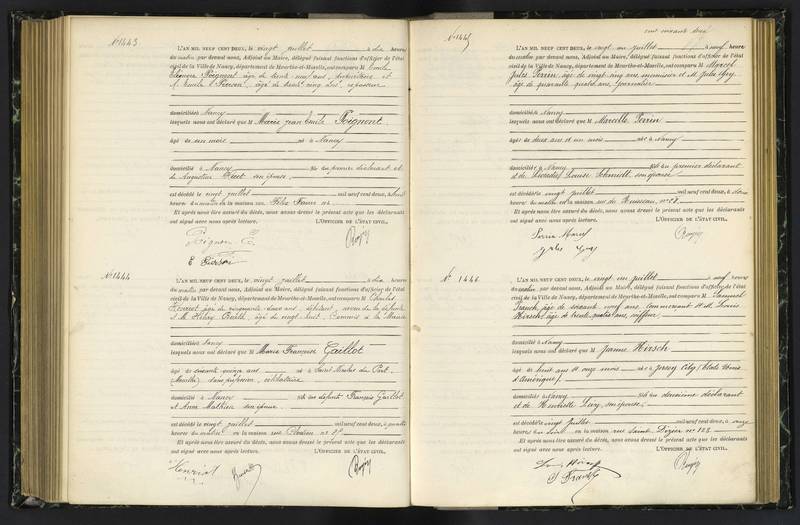 N° 1443
L'AN MIL NEUF CENT DEUX, le vingt juillet à dix heures
du matin par devant nous, Adjoint au Maire, délégué faisant fonctions d'officier de l'état
civil de la Ville de Nancy, département de Meurthe-et-Moselle, ont comparu M Emile
Poignont âgé de trente neuf ans, et
M. Emile Pierson, âgé de trente cinq ans,
domiciliés à Nancy
lesquels nous ont déclaré que M Marie Jean Emile Poignont
âgé de un mois né à Nancy
domicilié à Nancy fils du premier déclarant et
de Augustine son épouse
est décédé le vingt juillet mil neuf cent deux, à
heures du matin en la maison rue Félix Faure n°
Et après nous être assuré du décès, nous avons dressé le présent acte que les déclarants
ont signé avec nous après lecture. L'OFFICIER DE L'ÉTAT CIVIL,
E Pierson
N° 1444
L'AN MIL NEUF CENT DEUX, le vingt juillet à dix heures
du matin par devant nous, Adjoint au Maire, délégué faisant fonctions d'officier de l'état
civil de la Ville de Nancy, département de Meurthe-et-Moselle, ont comparu M Charles
Henriot âgé de cinquante deux ans, débitant, neveu de la défunte
et M. Henry âgé de vingt huit, Commis à la Mairie
domiciliés à Nancy
lesquels nous ont déclaré que M Marie Françoise Gaillot
âgé de soixante quinze ans né à Saint Nicolas du Port
(Meurthe) sans profession, célibataire
domicilié à Nancy fils de défunts François Gaillot
et Anne Mathieu son épouse
est décédé le vingt juillet mil neuf cent deux, à quatre
heures du matin en la maison rue n°
Et après nous être assuré du décès, nous avons dressé le présent acte que les déclarants
ont signé avec nous après lecture. L'OFFICIER DE L'ÉTAT CIVIL,
Henriot
N° 1445
L'AN MIL NEUF CENT DEUX, le vingt un juillet à neuf heures
du matin par devant nous, Adjoint au Maire, délégué faisant fonctions d'officier de l'état
civil de la Ville de Nancy, département de Meurthe-et-Moselle, ont comparu M Marcel
Jules Perrin, âgé de vingt cinq ans, menuisier et M. Jules Gry,
âgé de quarante quatre ans, journalier
domiciliés à Nancy
lesquels nous ont déclaré que M Marcelle Perrin
âgé de deux ans et un mois né à Nancy
domicilié à Nancy fils du premier déclarant
et de Louise Schmitt son épouse
est décédé le vingt juillet mil neuf cent deux, à
heures du matin en la maison rue du Ruisseau, n°
Et après nous être assuré du décès, nous avons dressé le présent acte que les déclarants
ont signé avec nous après lecture. L'OFFICIER DE L'ÉTAT CIVIL,
Perrin Marcel
Jules Gry
N° 1446
L'AN MIL NEUF CENT DEUX, le vingt un juillet à neuf heures
du matin par devant nous, Adjoint au Maire, délégué faisant fonctions d'officier de l'état
civil de la Ville de Nancy, département de Meurthe-et-Moselle, ont comparu M Samuel
Franck, âgé de soixante neuf ans, commerçant et M. Louis
Hirsch, âgé de trente quatre ans, coiffeur
domiciliés à Nancy
lesquels nous ont déclaré que M Jeanne Hirsch
âgé de huit ans et onze mois né à Jersey City (Etats Unis
d'Amérique)
domicilié à Nancy fils du deuxième déclarant
et de Henriette Lévy, son épouse
est décédé le vingt juillet mil neuf cent deux, à onze
heures du soir en la maison rue Saint Dizier n° 128
Et après nous être assuré du décès, nous avons dressé le présent acte que les déclarants
ont signé avec nous après lecture. L'OFFICIER DE L'ÉTAT CIVIL,
Louis Hirsch
S. Franck